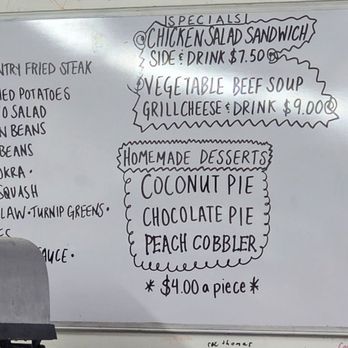 NTRY FRIED STEAK
HED POTATOES
O SALAD
N BEANS
BEANS
OKRA
SQUASH
LAW • TURNIP GREENS •
ES
AUCE •
SPECIALS!
CHICKEN SALAD SANDWICH
SIDE & DRINK $7.50
VEGETABLE BEEF SOUP
GRILLCHEESE & DRINK $9.00
HOMEMADE DESSERTS
COCONUT PIE
CHOCOLATE PIE
PEACH COBBLER
* $4.00 a piece *